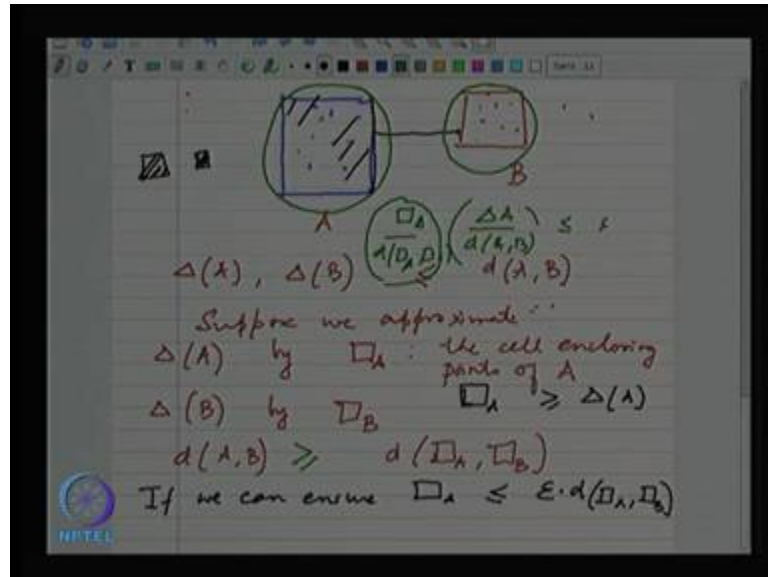 B
A
□A / d(□A, □B) ≤ ΔA / d(A,B) ≤
Δ(A), Δ(B) d(A,B)
Suppose we approximate
Δ(A) by □A : the cell enclosing
points of A
□A ≥ Δ(A)
Δ(B) by □B
d(A,B) ≥ d(□A, □B)
If we can ensure □A ≤ ε·d(□A, □B)
NPTEL